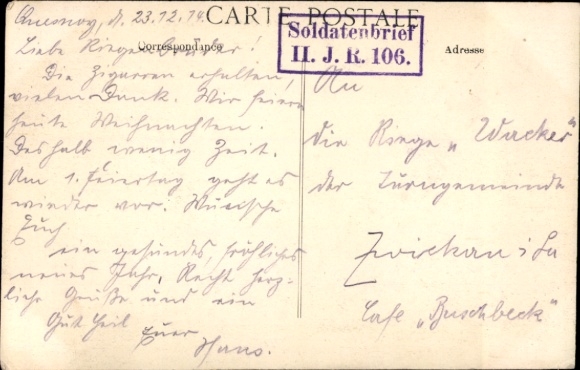 CARTE POSTALE
Correspondance
Adresse
Soldatenbrief
II. J. R. 106.
Quesnoy, d. 23.12.14.
Liebe Riegenbrüder!
Die Zigarren erhalten,
vielen Dank. Wir feiern
heute Weihnachten.
Deshalb wenig Zeit.
Am 1. Feiertag geht es
wieder vor. Wünsche
Euch
ein gesundes, fröhliches
neues Jahr. Recht herz-
liche Grüße und ein
Gut Heil
Euer
Hans.
An
die Riege „Wacker"
der Turngemeinde
Zwickau i/Sa
Cafe „Buschbeck"